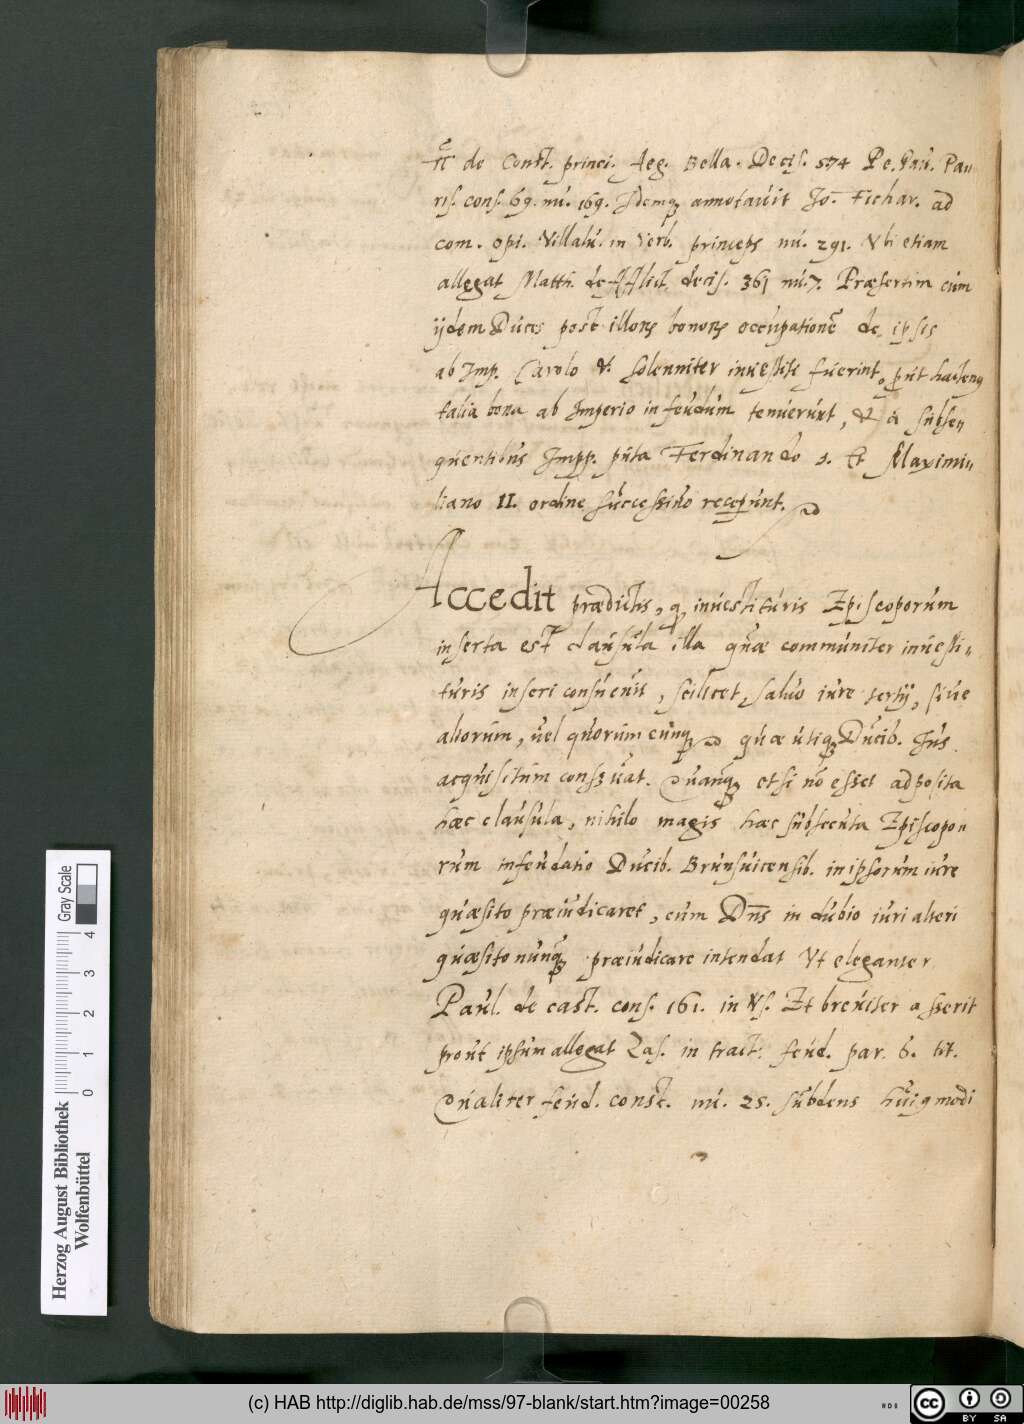 ff de Const. princi. Aeg. Bella. Decis. 574 Pe. Pau. Pau
ris. cons. 69. nu. 169. Idemq annotauit Jo. Fichar. ad
com. opi. Villalu. in verb. princeps nu. 291. Vbi etiam
allegat Matth. de Afflict. decis. 361 nu. 7. Præsertim cum
ijdem Duces post illoru bonoru occupatione de ipsis
ab Imp. Carolo V. solenniter inuestiti fuerint, put hactenq
talia bona ab Imperio in feudum tenuerunt, & à subse„
quentibus Impp. puta Ferdinando 1. Et Maximi„
liano II. ordine successiuo receperunt.
Accedit prædictis, q inuestituris Episcoporum
inserta est clausula illa quæ communiter inuesti„
turis inseri consueuit, scilicet, saluo iure tertij, siue
aliorum, uel quorumcunq quæ utiq Ducib. Jus
acquisitum conseruat. Quanq etsi nō esset adposita
hæc clausula, nihilo magis hæc subsecuta Episcopo„
rum infeudatio Ducib. Brunsuicensib. in ipsorum iure
quæsito præiudicaret, cum Dns in dubio iuri alteri
quæsito nunq præiudicare intendat Vt eleganter
Paul. de cast. cons. 161. in Vs. Et breuiter asserit
prout ipsum allegat Zas. in tract. feud. par. 6. tit.
Qualiter feud. const. nu. 25. subdens huigmodi
Herzog August Bibliothek
Wolfenbüttel
0 1 2 3 4
Gray Scale
(c) HAB http://diglib.hab.de/mss/97-blank/start.htm?image=00258
cc BY SA